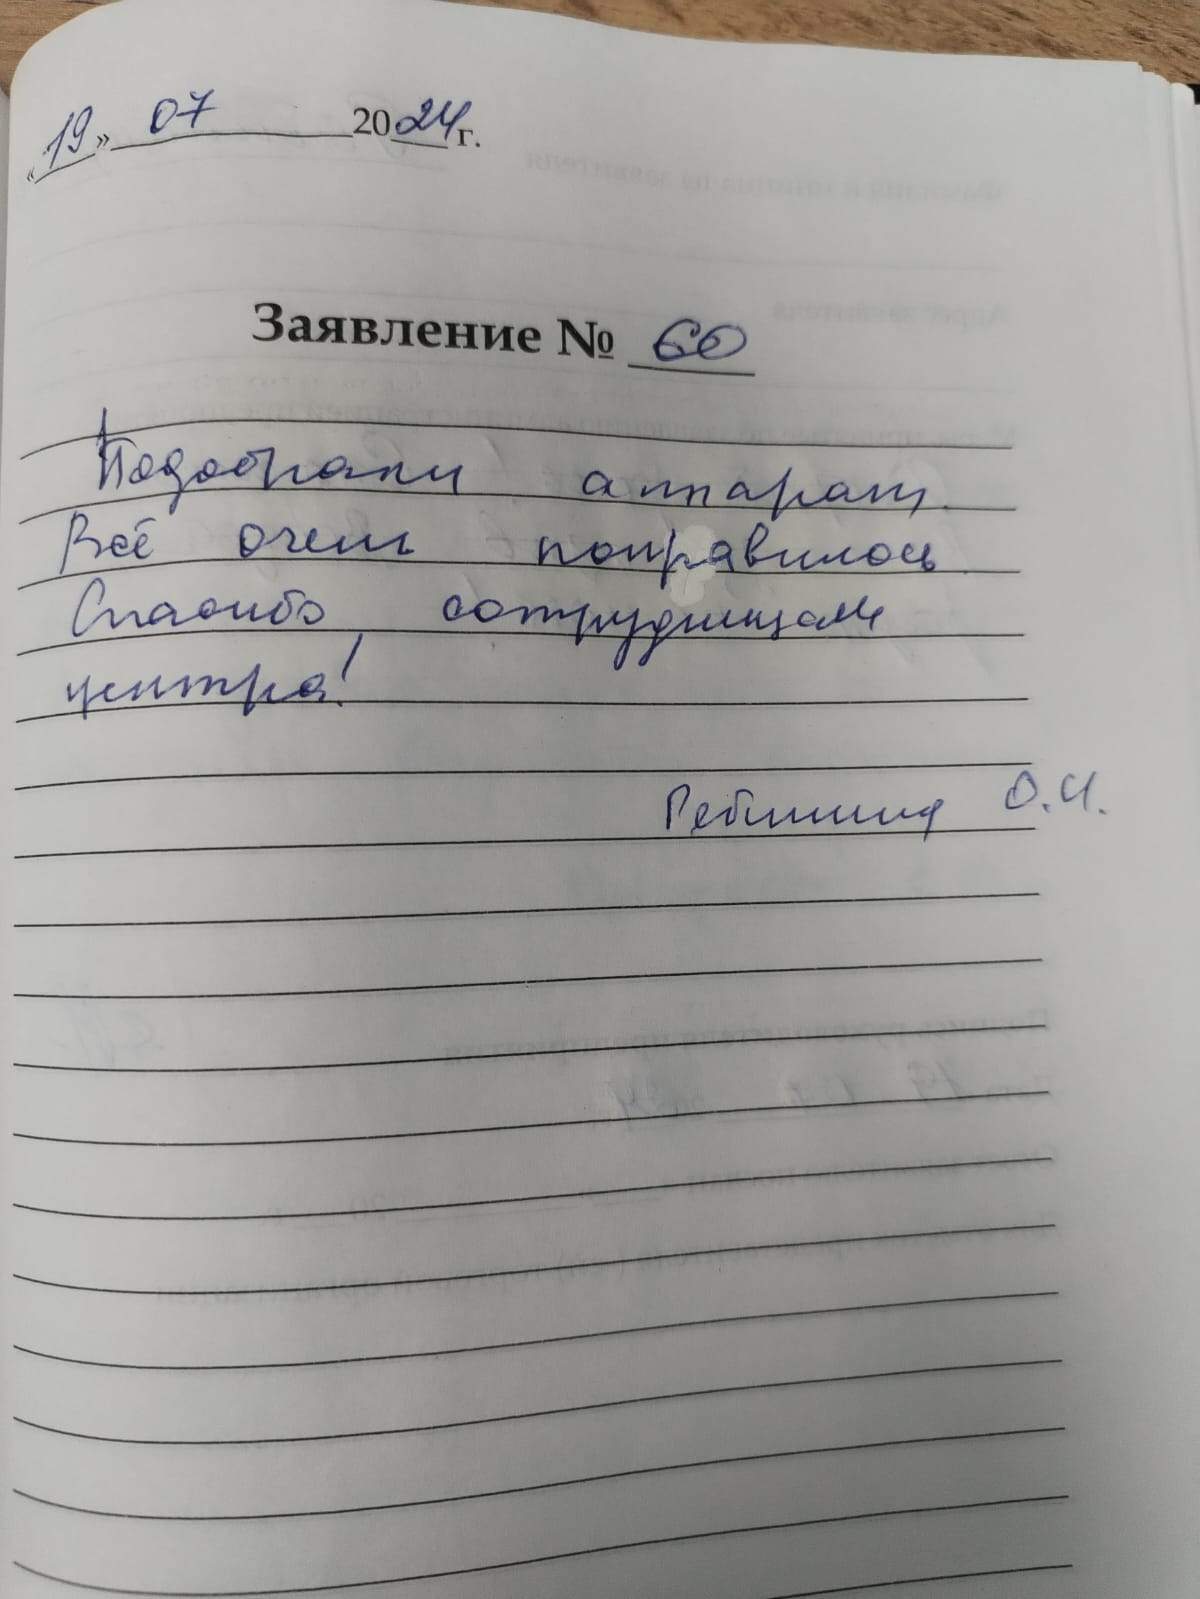 «19» 07 2024 г.
Заявление № 60
Подобрали аппарат.
Всё очень понравилось.
Спасибо сотрудницам
центра!
О.И.